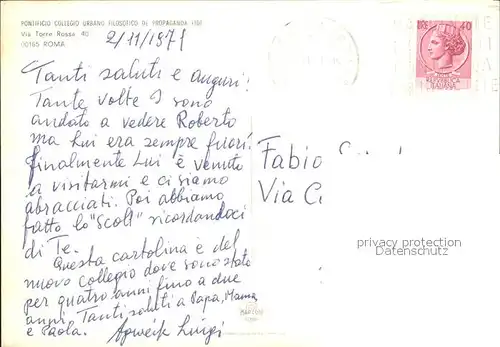 PONTIFICIO COLLEGIO URBANO FILOSOFICO DE PROPAGANDA FIDE
Via Torre Rossa 40
00165 ROMA
2/11/1971
40
Tanti saluti e auguri!
Tante volte I sono
andato a vedere Roberto
ma Lui era sempre fuori.
Finalmente Lui è venuto
a visitarmi e ci siamo
abracciati. Poi abbiamo
fatto lo "Scoli" ricordandoci
di Te.
Questa cartolina è del
nuovo Collegio dove sono stato
per quattro anni fino a due
anni. Tanti saluti a Papa, Mama
e Paola.
Luigi
Fabio
Via C
privacy protection
Datenschutz